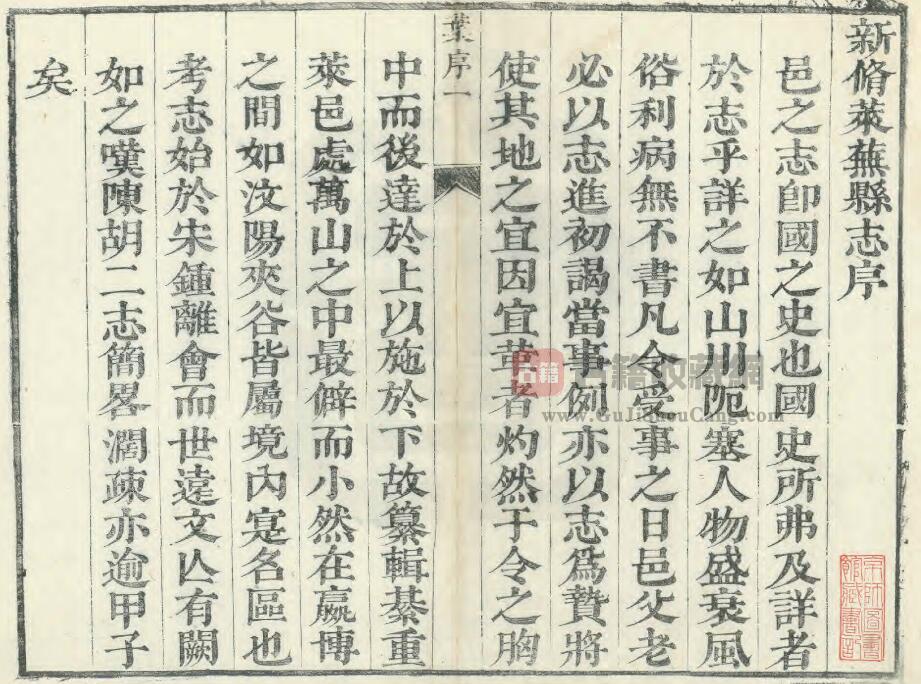 新脩萊蕪縣志序
邑之志卽國之史也國史所弗及詳者
於志乎詳之如山川阨塞人物盛衰風
俗利病無不書凡令受事之日邑父老
必以志進初謁當事例亦以志爲贄將
使其地之宜因宜革者灼然于令之胸
葉序一
中而後達於上以施於下故纂輯綦重
萊邑處萬山之中最僻而小然在嬴博
之間如汶陽夾谷皆屬境內寔名區也
考志始於宋鍾離會而世遠文亾有闕
如之嘆陳胡二志簡畧濶疎亦逾甲子
矣
古籍
古籍收藏網
www.GuJiShouCang.com